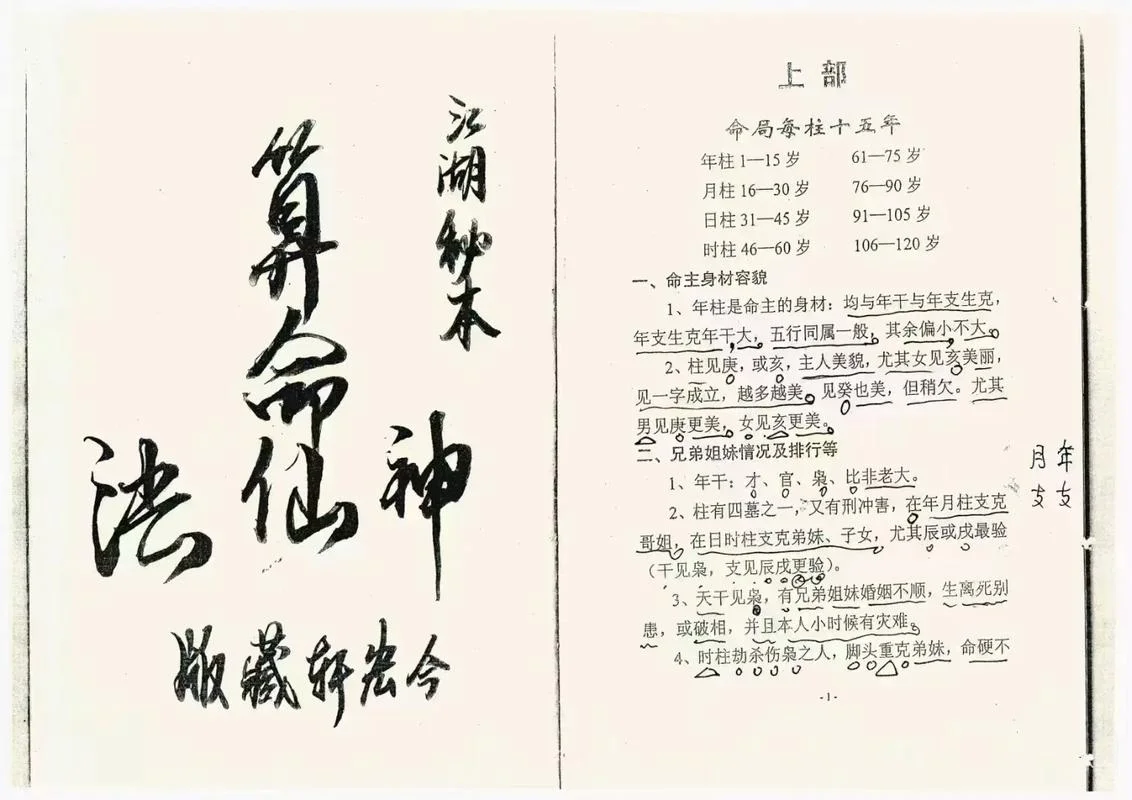 江湖秘本
算命仙
神
法
今宏轩藏版
上部
命局每柱十五年
年柱1—15岁 61—75岁
月柱16—30岁 76—90岁
日柱31—45岁 91—105岁
时柱46—60岁 106—120岁
一、命主身材容貌
1、年柱是命主的身材：均与年干与年支生克，
年支生克年干大，五行同属一般，其余偏小不大。
2、柱见庚，或亥，主人美貌，尤其女见亥美丽，
见一字成立，越多越美。见癸也美，但稍欠。尤其
男见庚更美，女见亥更美。
二、兄弟姐妹情况及排行等
1、年干：才、官、枭、比非老大。
2、柱有四墓之一，又有刑冲害，在年月柱支克
哥姐，在日时柱支克弟妹、子女，尤其辰或戌最验
（干见枭，支见辰戌更验）。
3、天干见枭，有兄弟姐妹婚姻不顺，生离死别
患，或破相，并且本人小时候有灾难。
4、时柱劫杀伤枭之人，脚头重克弟妹，命硬不
-1-
年支
月支